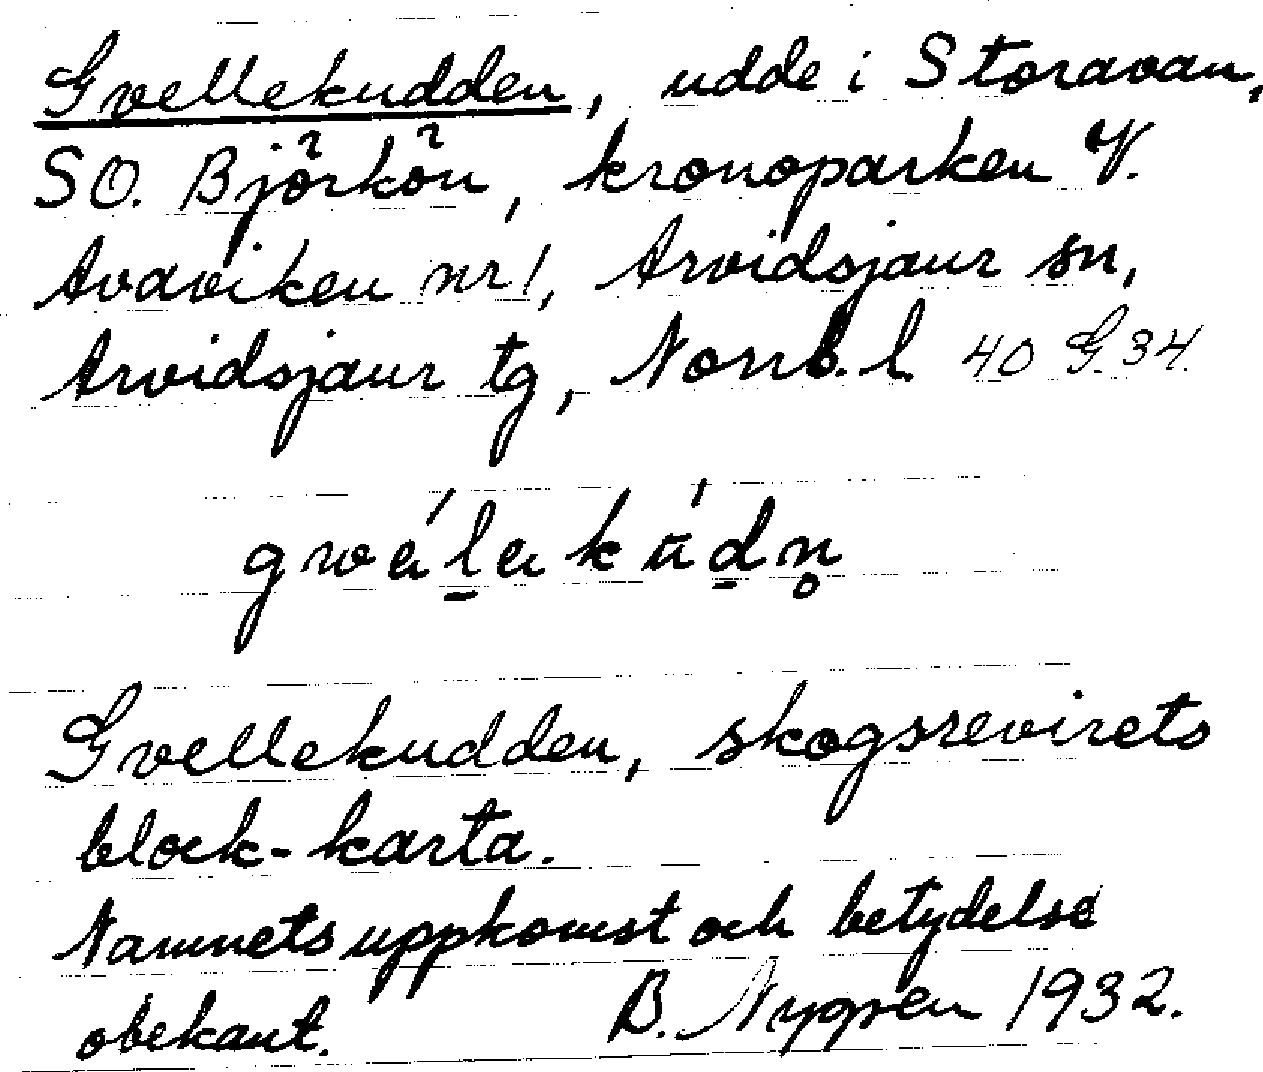 Gvellekudden, udde i Storavan,
SO. Björkön, kronoparken V.
Avaviken nr 1, Arvidsjaur sn,
Arvidsjaur tg, Norrb. l. 40 G. 34.
Gvellekudden, skogsrevirets
block-karta.
Namnets uppkomst och betydelse
obekant. B. Nygren 1932.